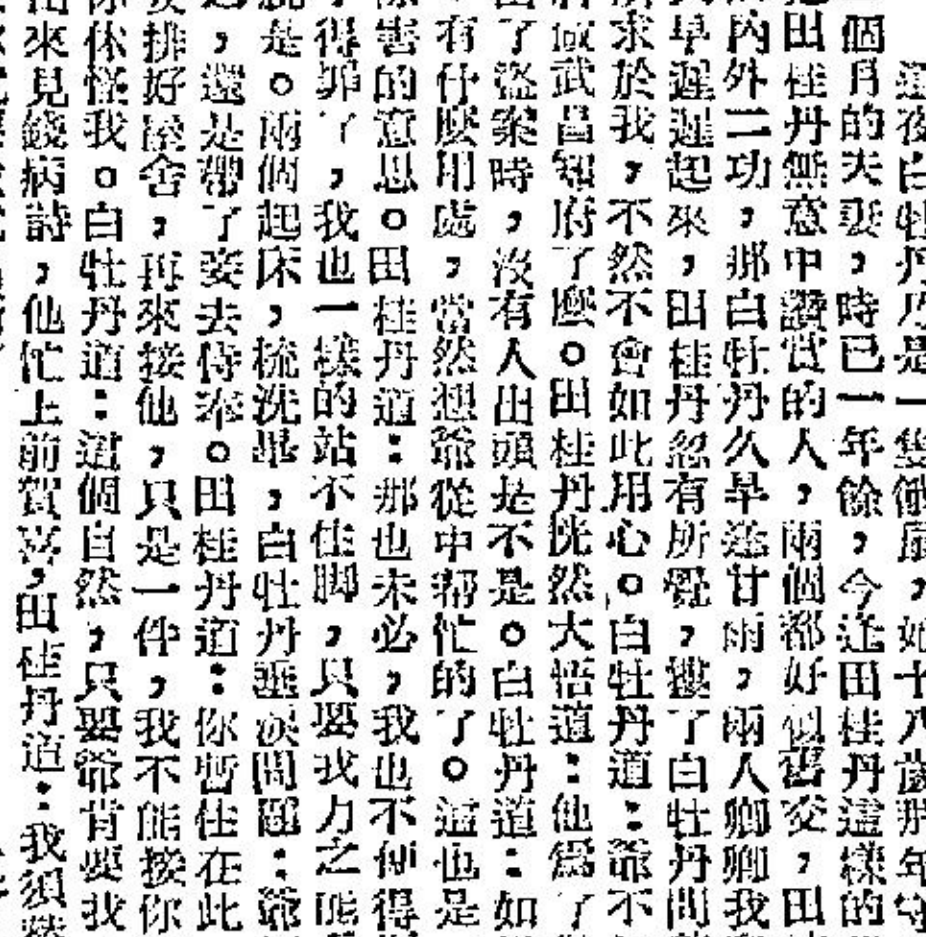 這夜白牡丹乃是一隻餓扇,如十八歲那年守
個月的夫妻,時已一年餘,今逢田桂丹這樣的
田桂丹無意中讚賞的人,兩個都好似舊交,田
內外二功,那白牡丹久旱逢甘雨,兩人卿卿我
早遲遲起來,田桂丹忽有所覺,摟了白牡丹問
求於我,不然不會如此用心。白牡丹道:爺不
成武昌知府了麽。田桂丹恍然大悟道:他爲了
了盜案時,沒有人出頭是不是。白牡丹道:如
有什麽用處,當然想爺從中帮忙的了。這也是
害的意思。田桂丹道:那也未必,我也不傳得
得罪了,我也一樣的站不住脚,只要我力之能
是。兩個起床,梳洗畢,白牡丹垂淚問題:爺
,還是帶了妾去侍奉。田桂丹道:你暫住在此
排好屋舍,再來接他,只是一件,我不能接你
休怪我。白牡丹道:這個自然,只要爺肯要我
來見錢病詩,他忙上前賀喜,田桂丹道:我須